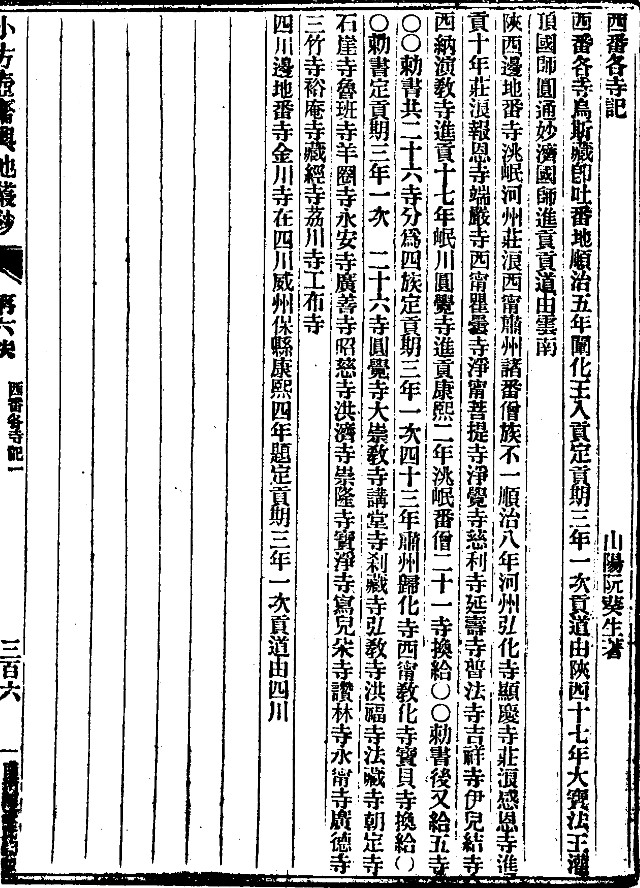 西番各寺記
山陽阮葵生著
西番各寺烏斯藏卽吐番地順治五年闡化王入貢定貢期三年一次貢道由陝西十七年大寶法王灌
頂國師圓通妙濟國師進貢貢道由雲南
陝西邊地番寺洮岷河州莊浪西甯肅州諸番僧族不一順治八年河州弘化寺顯慶寺莊浪感恩寺進
貢十年莊浪報恩寺端嚴寺西甯瞿曇寺淨甯菩提寺淨覺寺慈利寺延壽寺普法寺吉祥寺伊兒結寺
西納演教寺進貢十七年岷川圓覺寺進貢康熙二年洮岷番僧二十一寺換給〇〇勅書後又給五寺
〇〇勅書共二十六寺分爲四族定貢期三年一次四十三年肅州歸化寺西甯敎化寺寶貝寺換給〇
〇勅書定貢期三年一次　二十六寺圓覺寺大崇敎寺講堂寺刹藏寺弘敎寺洪福寺法藏寺朝定寺
石崖寺魯班寺羊圈寺永安寺廣善寺昭慈寺洪濟寺崇隆寺寶淨寺寫兒朵寺讚林寺永甯寺廣德寺
三竹寺裕庵寺藏經寺荔川寺工布寺
四川邊地番寺金川寺在四川威州保縣康熙四年題定貢期三年一次貢道由四川
小方壺齋輿地叢鈔
再六帙
西番各寺記一
三百六